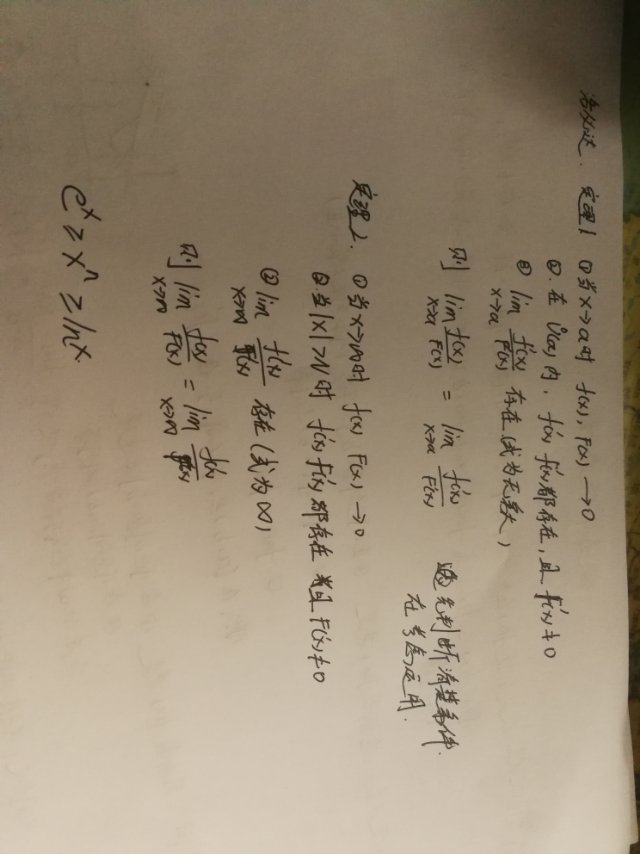 洛必达. 定理1 ①当x→a时 f(x), F(x) →0
②. 在 Ů(a) 内, f'(x) F'(x)都存在,且 F'(x)≠0
③ lim x→a f'(x)/F'(x) 存在(或为无穷大)
则 lim x→a f(x)/F(x) = lim x→a f'(x)/F'(x)
先判断满足条件.
在考虑应用.
定理2. ①当x→∞时 f(x) F(x) →0
②当|x|>N时 f'(x) F'(x)都存在 且 F'(x)≠0
③ lim x→∞ f'(x)/F'(x) 存在(或为∞)
则 lim x→∞ f(x)/F(x) = lim x→∞ f'(x)/F'(x)
eˣ ≥ xⁿ ≥ lnx